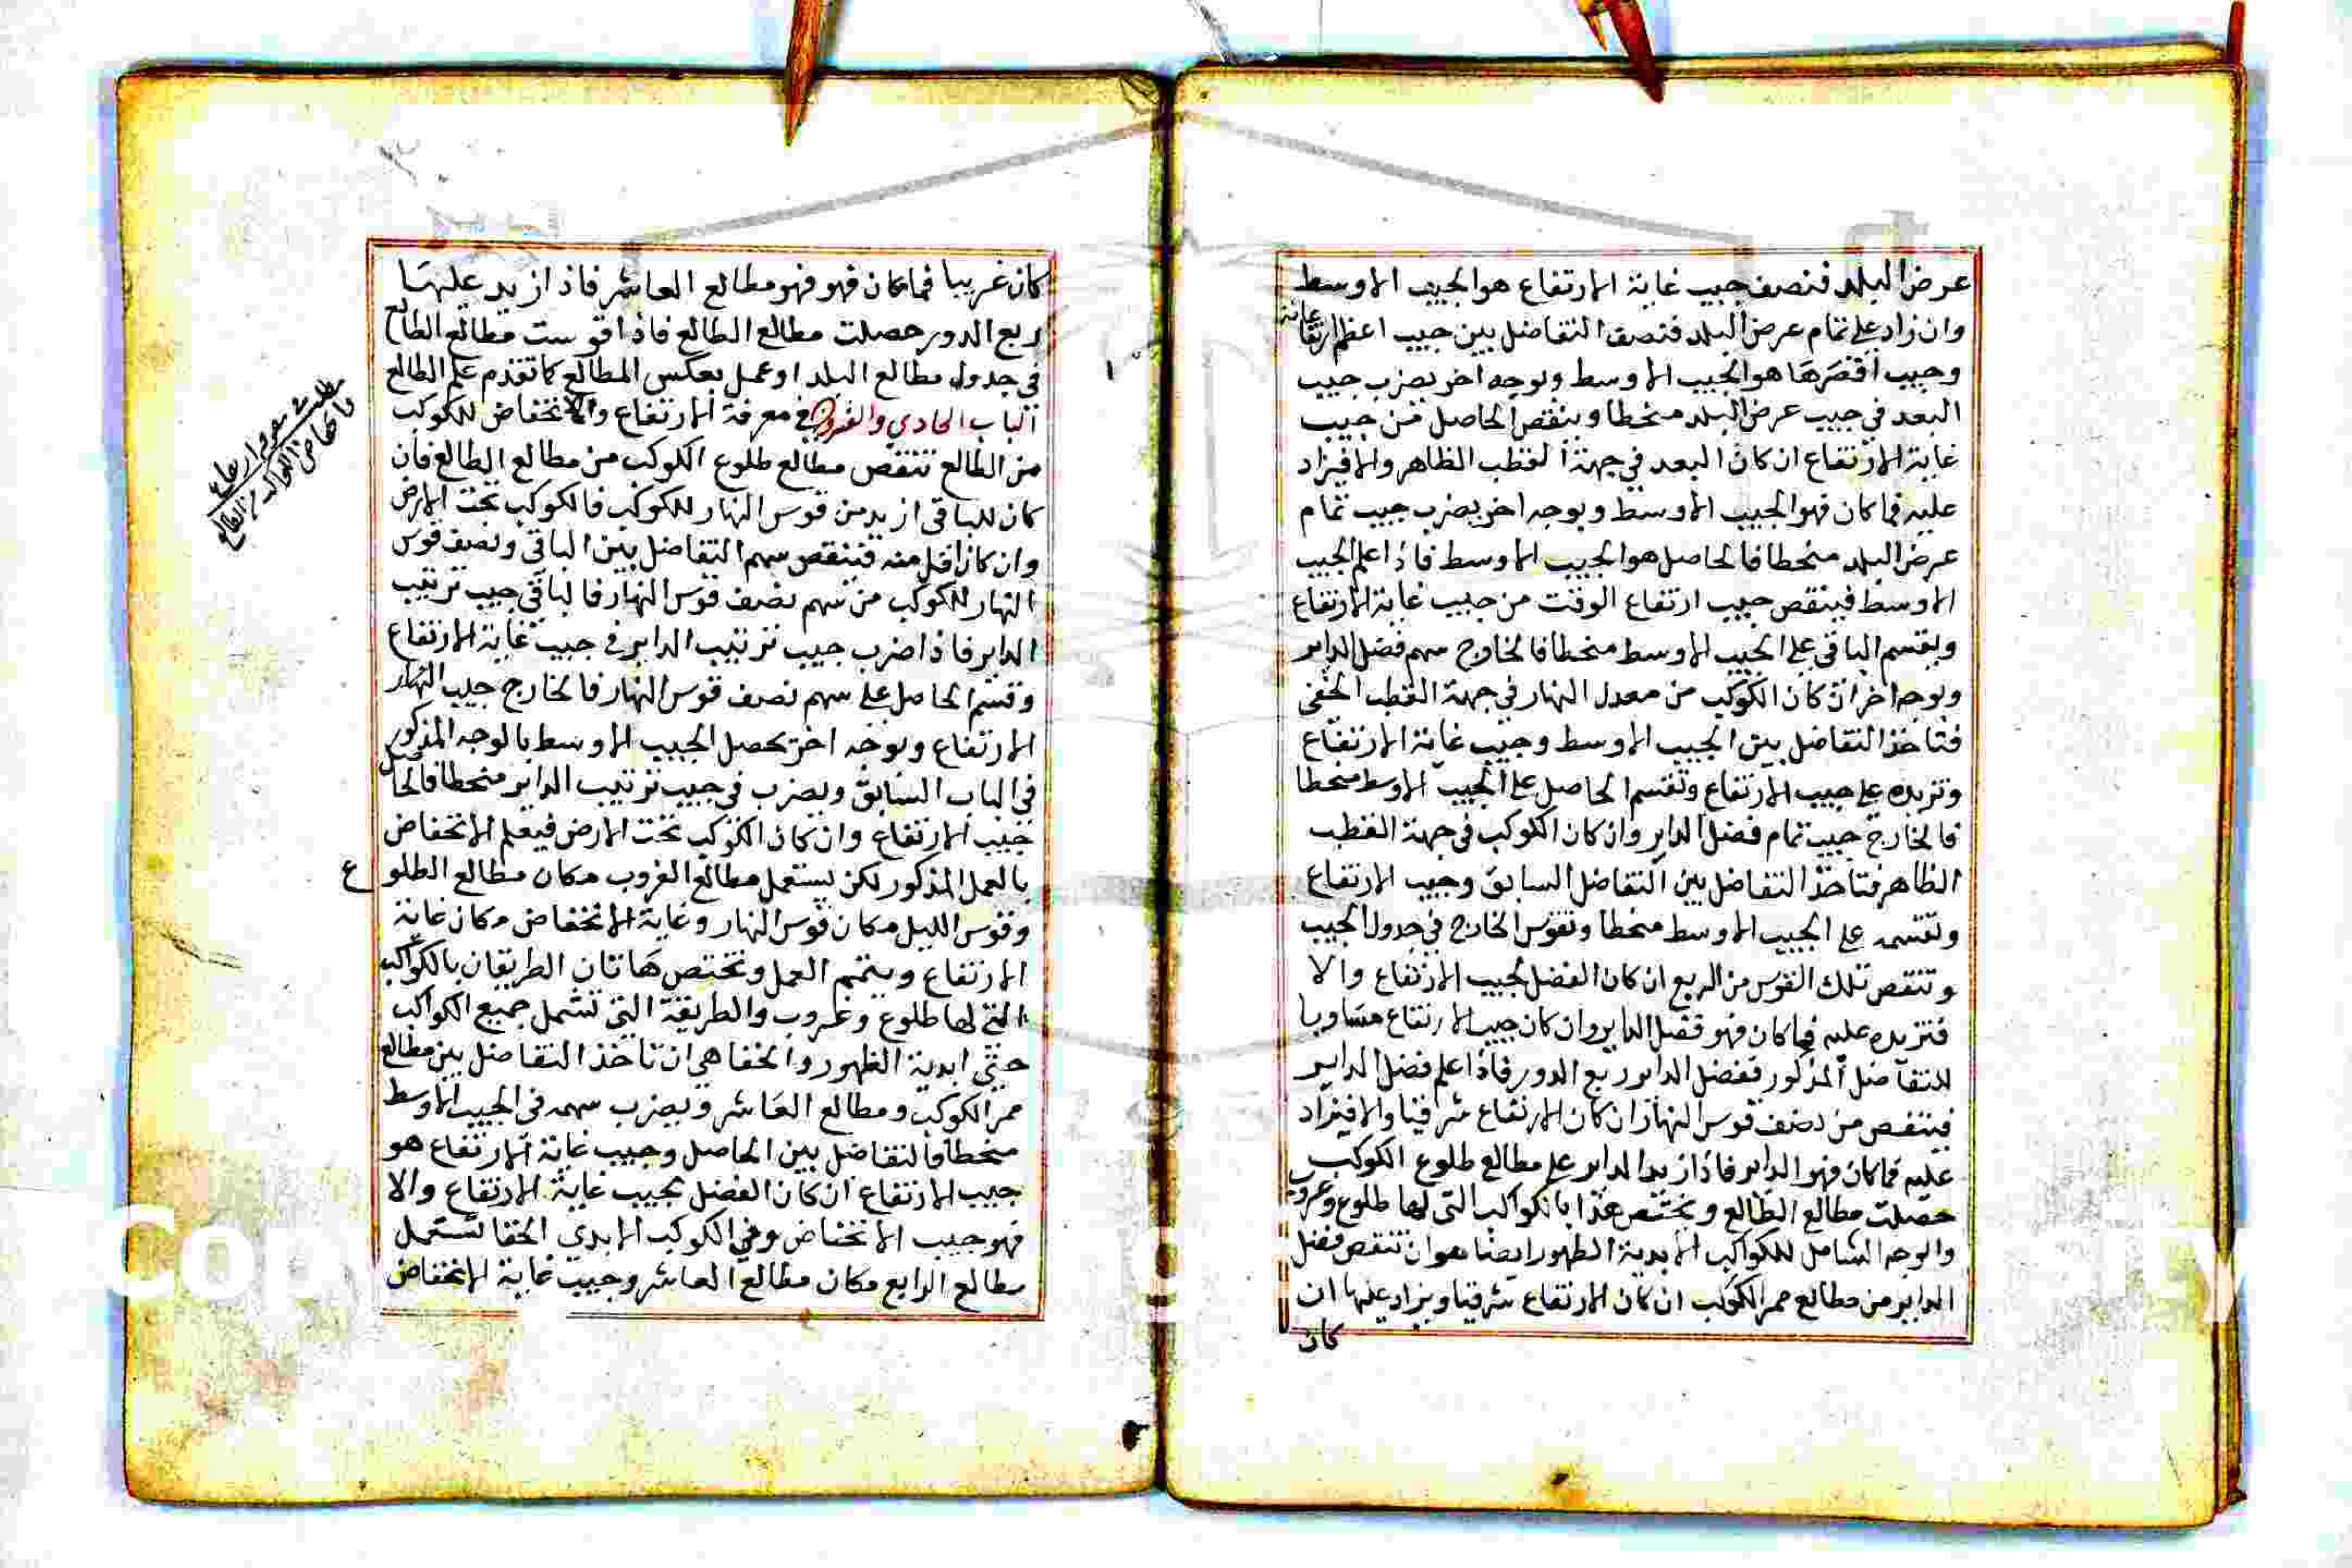 عرض البلد فنصف جيب غاية الارتفاع هو الجيب الاوسط
وان زاد على تمام عرض البلد فنصف التفاضل بين جيب اعظم ارتفاعاته
وجيب اقصرها هو الجيب الاوسط وبوجه اخر يضرب جيب
البعد في جيب عرض البلد منحطا وينقص الحاصل من جيب
غاية الارتفاع ان كان البعد في جهة القطب الظاهر والا فيزاد
عليه فما كان فهو الجيب الاوسط وبوجه اخر يضرب جيب تمام
عرض البلد منحطا فالحاصل هو الجيب الاوسط فاذا علم الجيب
الاوسط فينقص جيب ارتفاع الوقت من جيب غاية الارتفاع
ويقسم الباقي على الجيب الاوسط منحطا فالخارج سهم فضل الداير
وبوجه اخر ان كان الكوكب من معدل النهار في جهة القطب الخفي
فتاخذ التفاضل بين الجيب الاوسط وجيب غاية الارتفاع
وتزيده على جيب الارتفاع وتقسم الحاصل على الجيب الاوسط منحطا
فالخارج جيب تمام فضل الداير وان كان الكوكب في جهة القطب
الظاهر فتاخذ التفاضل بين التفاضل السابق وجيب الارتفاع
وتقسمه على الجيب الاوسط منحطا وتقوس الخارج في جدول الجيب
وتنقص تلك القوس من الربع ان كان الفضل لجيب الارتفاع والا
فتزيده عليه فما كان فهو فضل الداير وان كان جيب الارتفاع مساويا
للتفاضل المذكور ففضل الداير ربع الدور فاذا علم فضل الداير
فينقص من نصف قوس النهار ان كان الارتفاع شرقيا والا فيزاد
عليه فما كان فهو الداير فاذا زيد الداير على مطالع طلوع الكوكب
حصلت مطالع الطالع ويختص هذا بالكواكب التى لها طلوع وغروب
والوجه الشامل للكواكب الابدية الظهور ايضا هو ان تنقص فضل
الداير من مطالع ممر الكوكب ان كان الارتفاع شرقيا ويزاد عليها ان
كان
كان غربيا فما كان فهو فهو مطالع العاشر فاذا زيد عليها
ربع الدور حصلت مطالع الطالع فاذا قوست مطالع الطالع
في جدول مطالع البلد او عمل بعكس المطالع كما تقدم علم الطالع
الباب الحادي والعشرون في معرفة الارتفاع والانخفاض للكوكب
من الطالع تنقص مطالع طلوع الكوكب من مطالع الطالع فان
كان الباقي ازيد من قوس النهار للكوكب فالكوكب تحت الارض
وان كان اقل منه فينقص سهم التفاضل بين الباقي ونصف قوس
النهار للكوكب من سهم نصف قوس النهار فالباقي جيب ترتيب
الداير فاذا ضرب جيب ترتيب الداير في جيب غاية الارتفاع
وقسم الحاصل على سهم نصف قوس النهار فالخارج جيب النهار
الارتفاع وبوجه اخر يحصل الجيب الاوسط بالوجه المذكور
في الباب السابق ويضرب في جيب ترتيب الداير منحطا فالحاصل
جيب الارتفاع وان كان الكوكب تحت الارض فيعلم الانخفاض
بالعمل المذكور لكن يستعمل مطالع الغروب مكان مطالع الطلوع
وقوس الليل مكان قوس النهار وغاية الانخفاض مكان غاية
الارتفاع ويتمم العمل وتختص هاتان الطريقان بالكواكب
التي لها طلوع وغروب والطريقة التى تشمل جميع الكواكب
حتى ابدية الظهور والخفا هي ان تاخذ التفاضل بين مطالع
ممر الكوكب ومطالع العاشر ويضرب سهمه في الجيب الاوسط
منحطا فالتفاضل بين الحاصل وجيب غاية الارتفاع هو
جيب الارتفاع ان كان الفضل لجيب غاية الارتفاع والا
فهو جيب الانخفاض وفي الكوكب الابدي الخفا تستعمل
مطالع الرابع مكان مطالع العاشر وجيب غاية الانخفاض